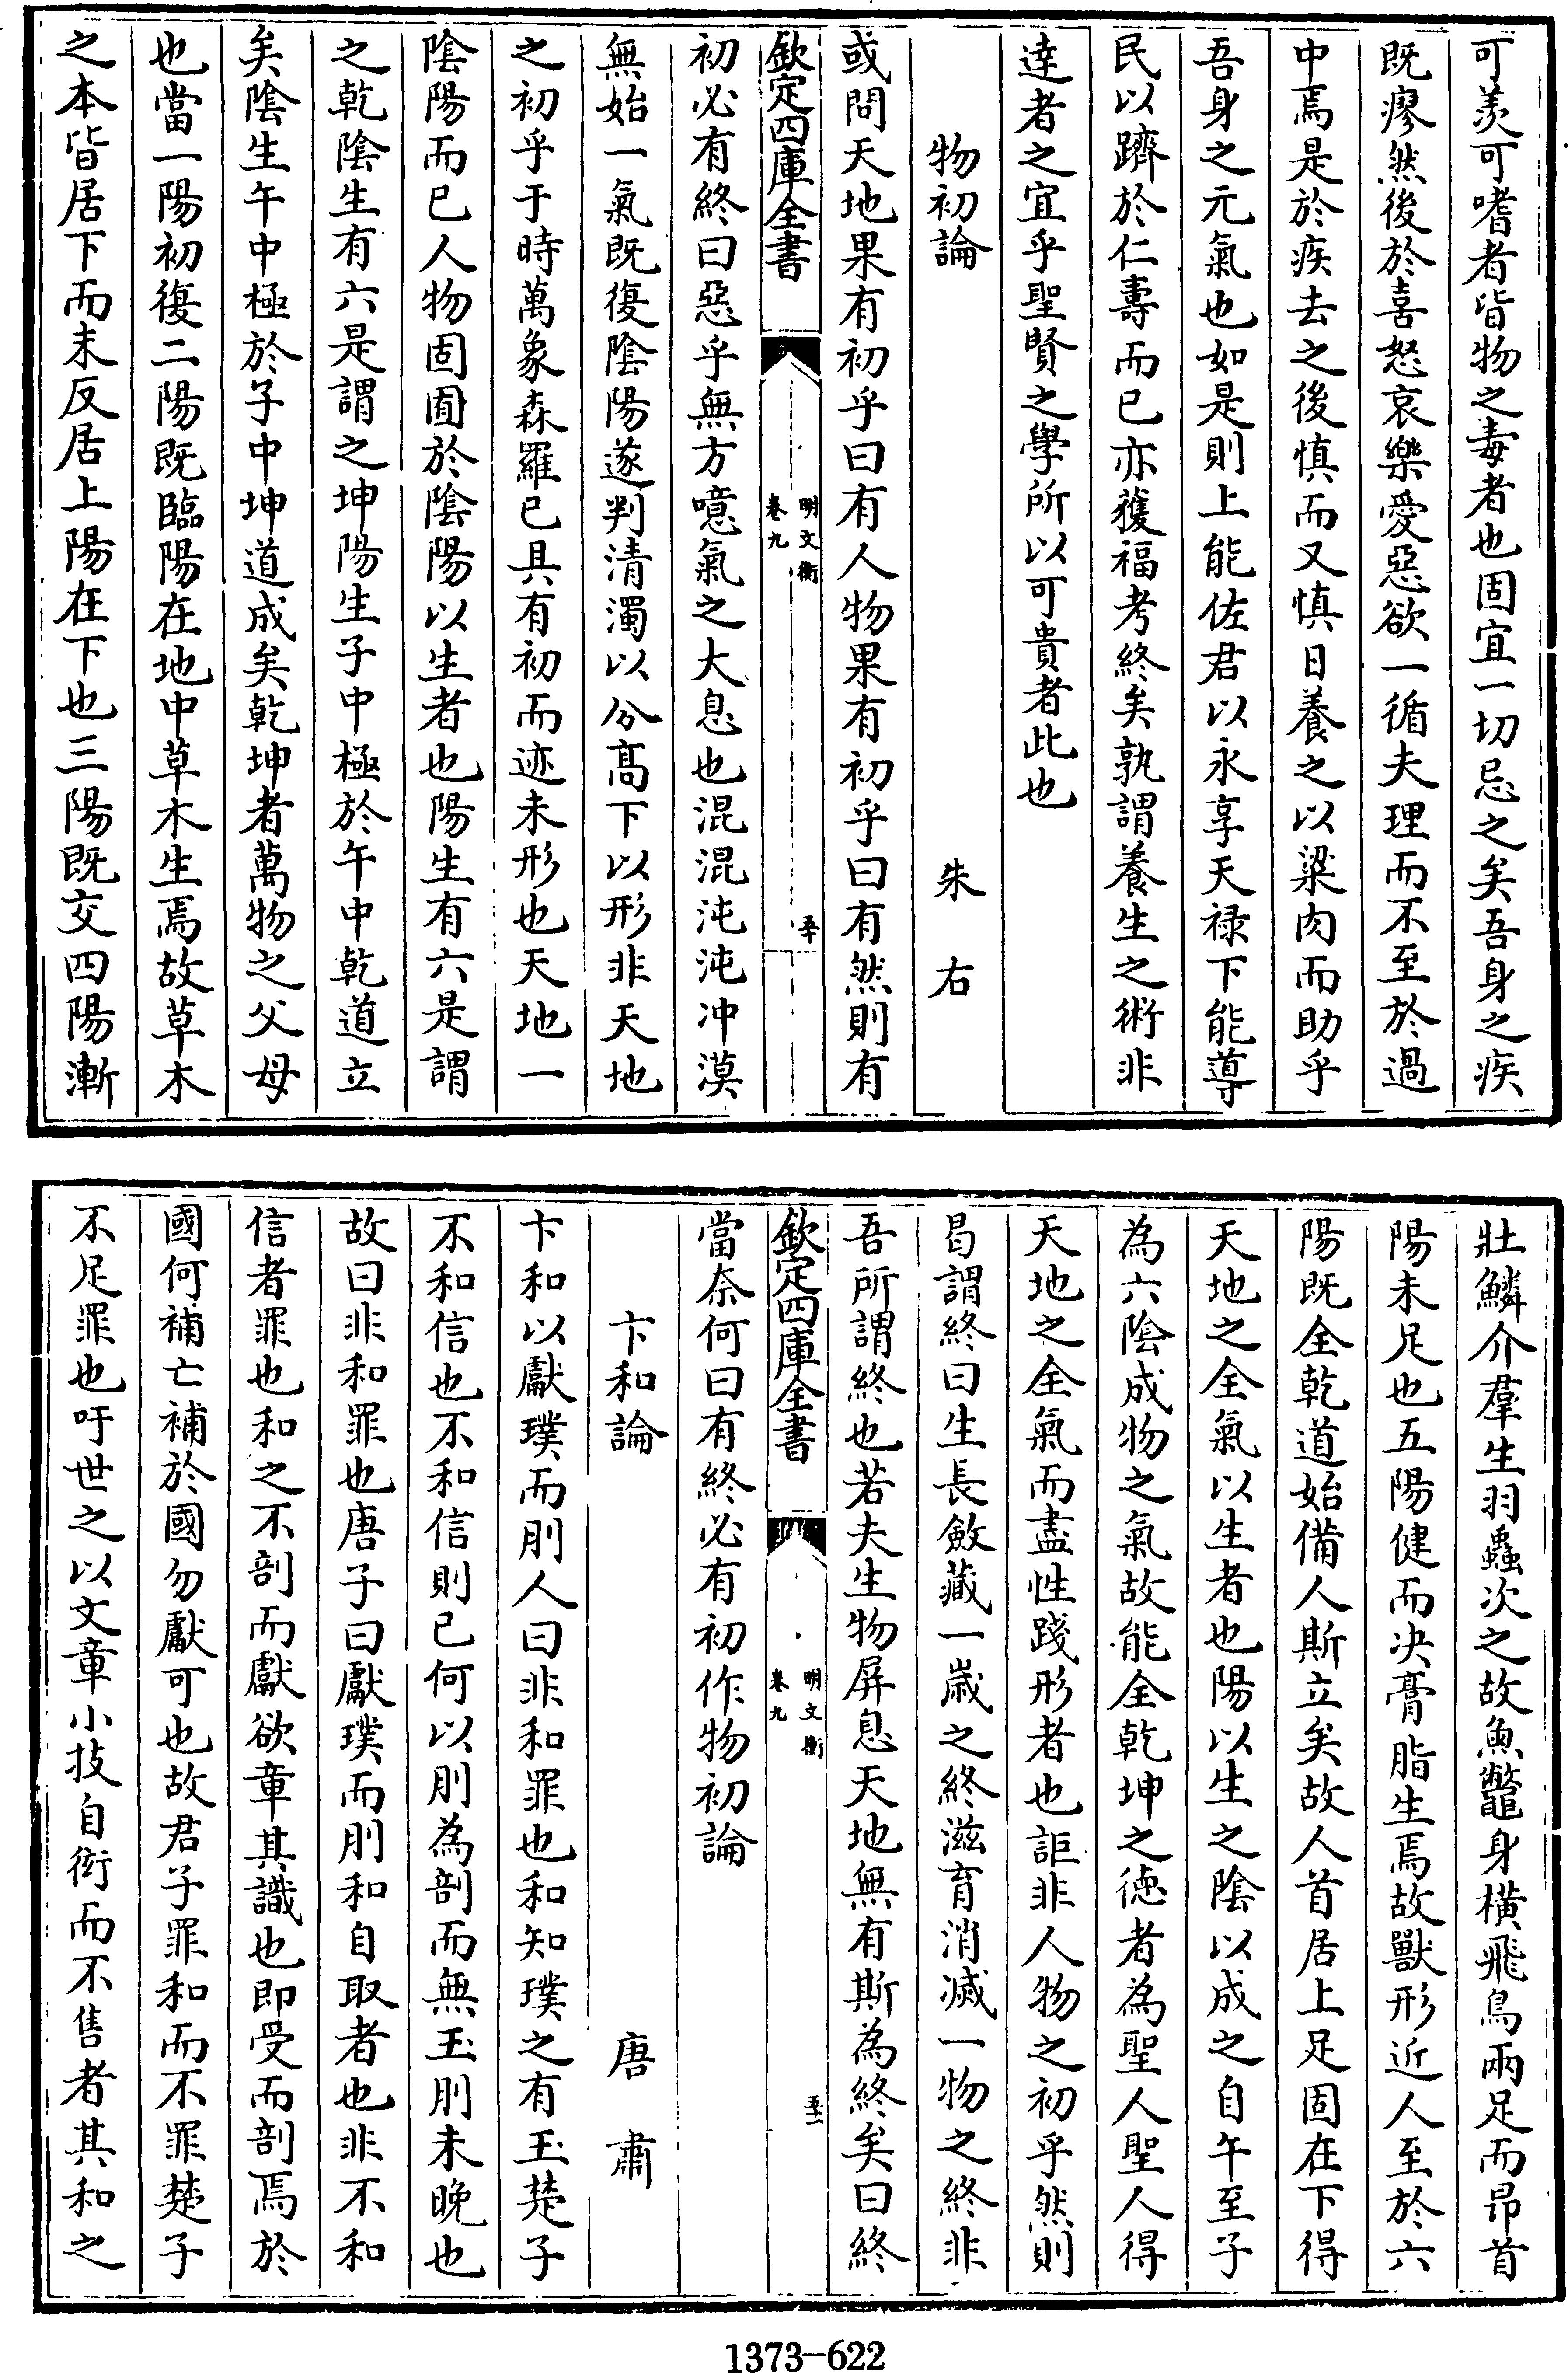 可羨可嗜者皆物之毒者也固宜一切忌之矣吾身之疾
既瘳然後於喜怒哀樂愛惡欲一循夫理而不至於過
中焉是於疾去之後慎而又慎日養之以粱肉而助乎
吾身之元氣也如是則上能佐君以永享天禄下能導
民以躋於仁壽而已亦獲福考終矣孰謂養生之術非
達者之宜乎聖賢之學所以可貴者此也
物初論 朱右
或問天地果有初乎曰有人物果有初乎曰有然則有
欽定四庫全書 明文衡 卷九 五十
初必有終曰惡乎無方噫氣之大息也混混沌沌冲漠
無始一氣既復陰陽遂判清濁以分髙下以形非天地
之初乎于時萬象森羅已具有初而迹未形也天地一
陰陽而已人物固囿於陰陽以生者也陽生有六是謂
之乾陰生有六是謂之坤陽生子中極於午中乾道立
矣陰生午中極於子中坤道成矣乾坤者萬物之父母
也當一陽初復二陽既臨陽在地中草木生焉故草木
之本皆居下而末反居上陽在下也三陽既交四陽漸
壯鱗介羣生羽蟲次之故魚鼈身横飛鳥兩足而昂首
陽未足也五陽健而决膏脂生焉故獸形近人至於六
陽既全乾道始備人斯立矣故人首居上足固在下得
天地之全氣以生者也陽以生之陰以成之自午至子
為六陰成物之氣故能全乾坤之徳者為聖人聖人得
天地之全氣而盡性踐形者也詎非人物之初乎然則
曷謂終曰生長斂藏一嵗之終滋育消滅一物之終非
吾所謂終也若夫生物屏息天地無有斯為終矣曰終
欽定四庫全書 明文衡 卷九 五十一
當奈何曰有終必有初作物初論
卞和論 唐肅
卞和以獻璞而刖人曰非和罪也和知璞之有玉楚子
不和信也不和信則已何以刖為剖而無玉刖未晚也
故曰非和罪也唐子曰獻璞而刖和自取者也非不和
信者罪也和之不剖而獻欲章其識也即受而剖焉於
國何補亡補於國勿獻可也故君子罪和而不罪楚子
不足罪也吁世之以文章小技自衒而不售者其和之
1373-622